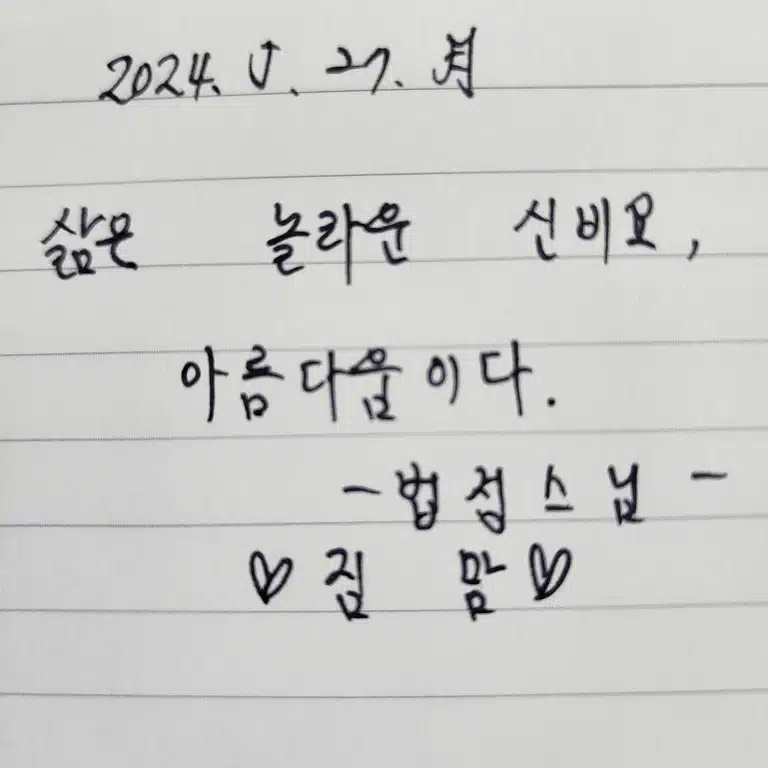 2024. 5. 27. 月
삶은 놀라운 신비요,
아름다움이다.
- 법정스님 -
♡ 짐 맘 ♡